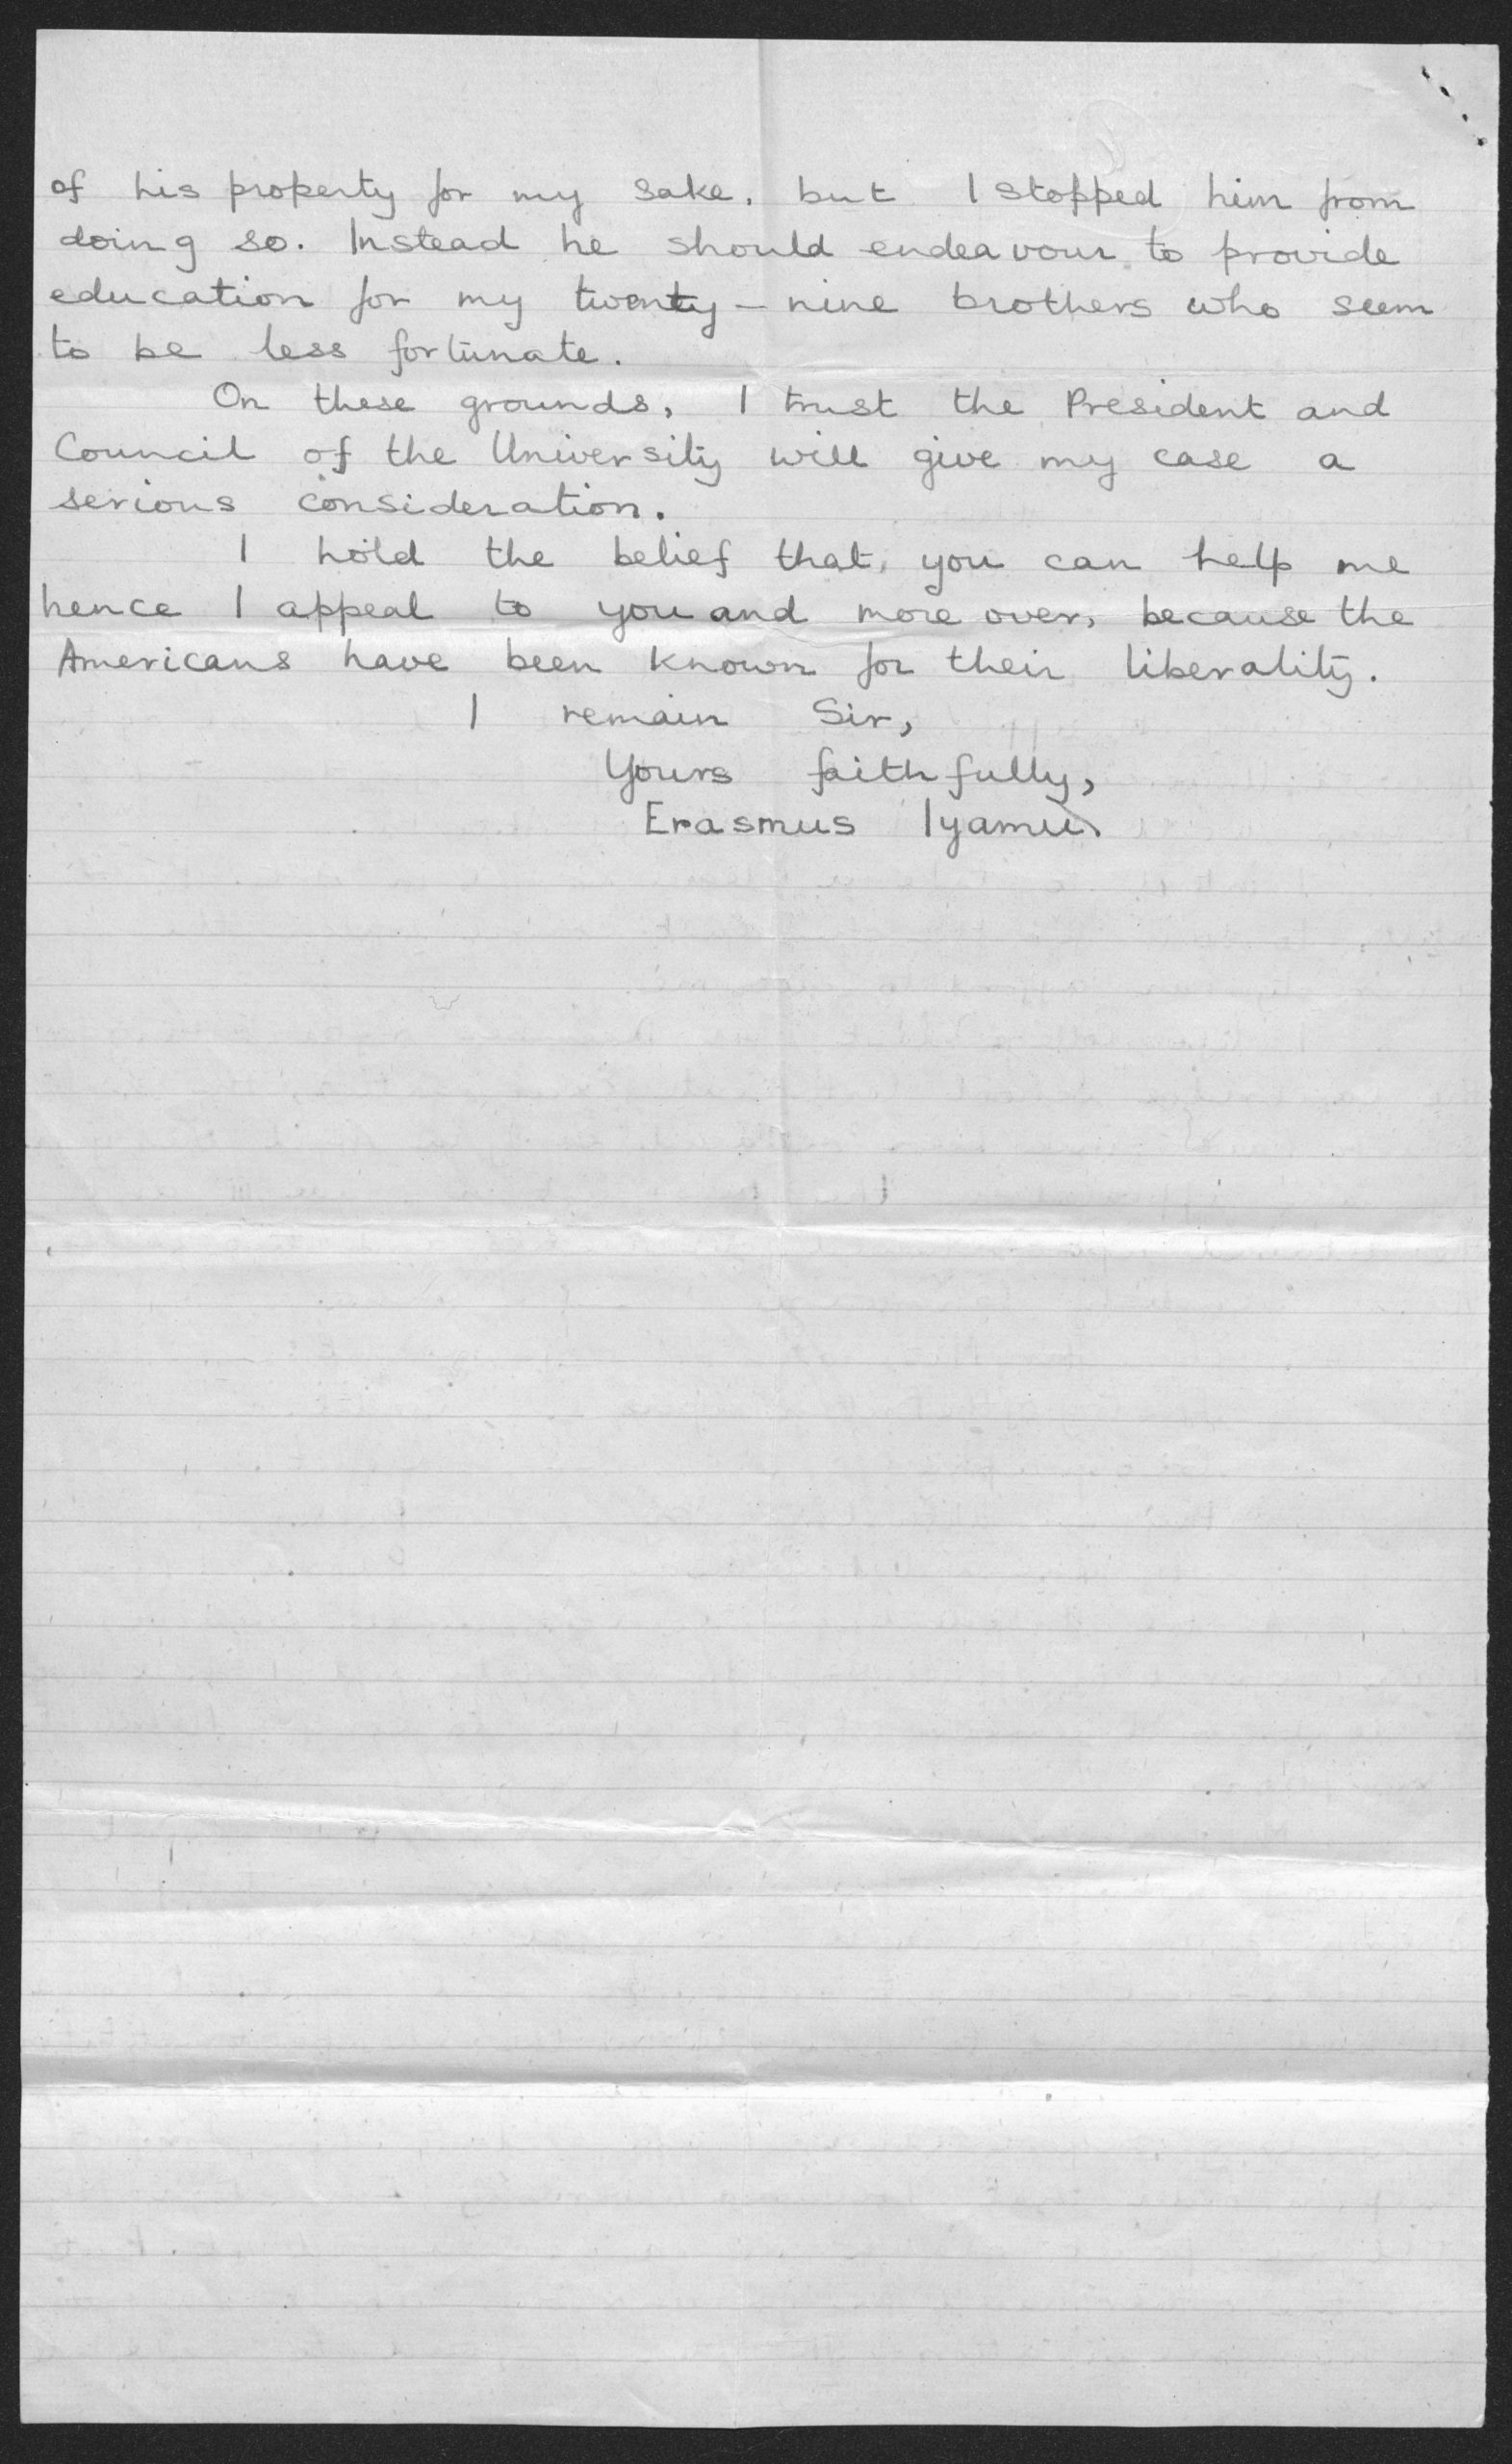 of his property for my sake, but I stopped him from
doing so. Instead he should endeavour to provide
education for my twenty-nine brothers who seem
to be less fortunate.
On these grounds, I trust the President and
Council of the University will give my case a
serious consideration.
I hold the belief that you can help me
hence I appeal to you and more over, because the
Americans have been known for their liberality.
I remain Sir,
Yours faithfully,
Erasmus Iyamu.